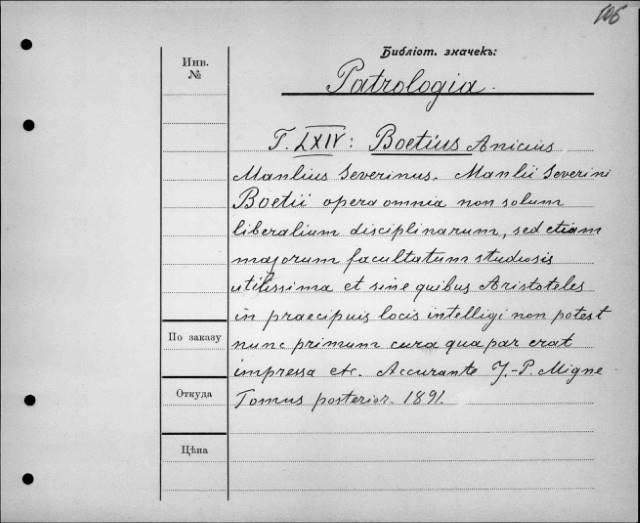 106
Библіот. значекъ:
Инв.
№
Patrologia.
T. LXIV: Boetius Anicius
Manlius Severinus. Manlii Severini
Boetii opera omnia non solum
liberalium disciplinarum, sed etiam
majorum facultatum studiosis
utilissima et sine quibus Aristoteles
in praecipuis locis intelligi non potest
По заказу
nunc primum cura qua par erat
impressa etc. Accurante J.-P. Migne
Откуда
Tomus posterior. 1891.
Цѣна